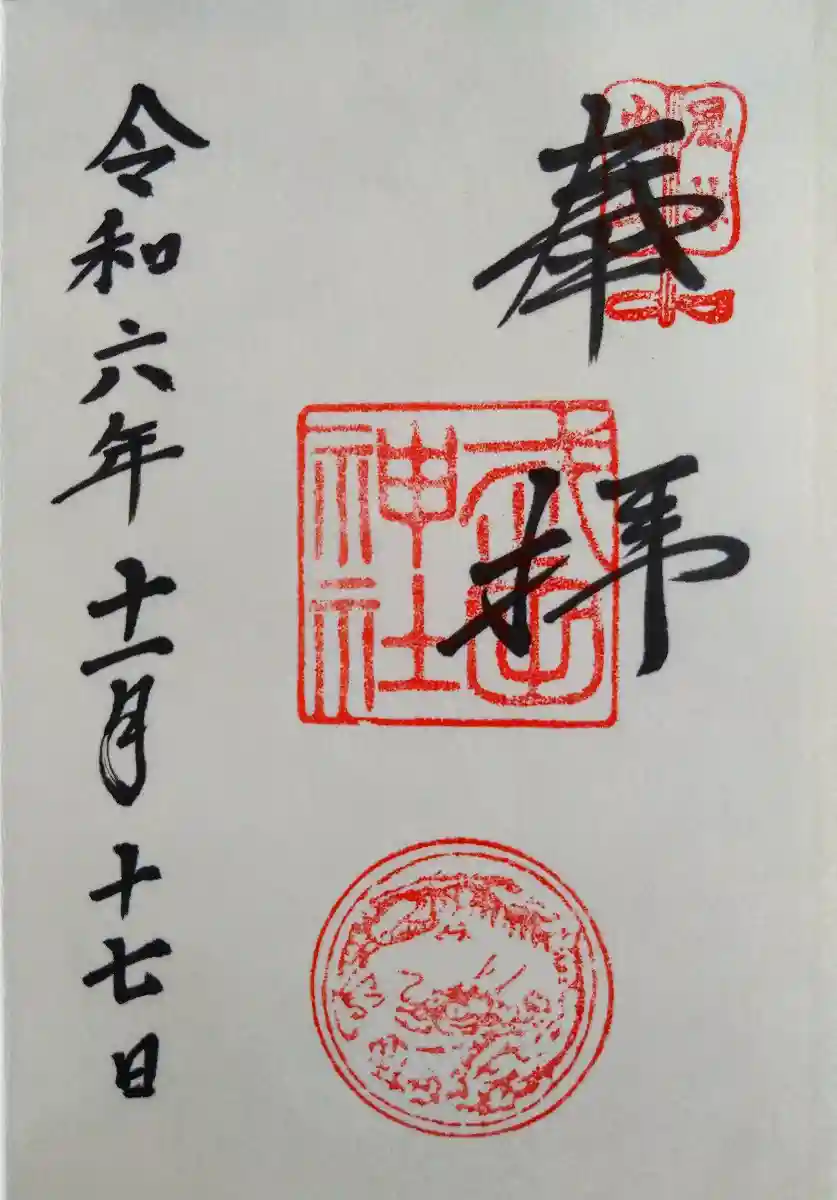 奉拝
武田神社
令和六年十一月十七日